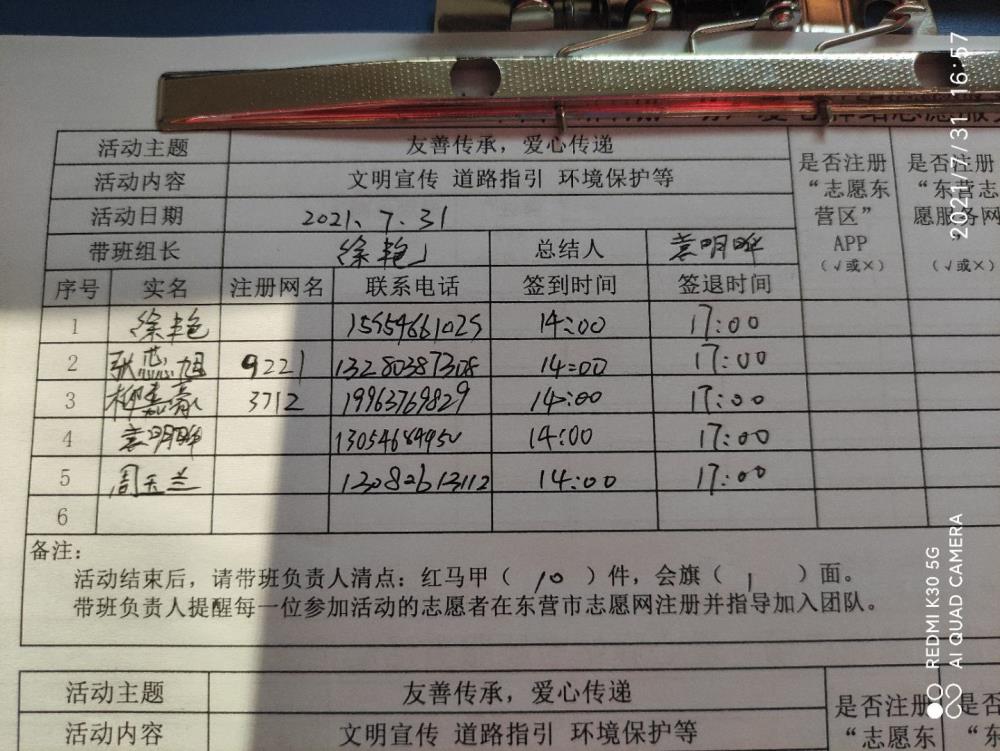 活动主题 友善传承，爱心传递 是否注册“志愿东营区”APP（√或×） 是否注册“东营志愿服务网”（√或×）
活动内容 文明宣传 道路指引 环境保护等
活动日期 2021、7、31
带班组长 徐艳 总结人 袁明晔
序号 实名 注册网名 联系电话 签到时间 签退时间
1 徐艳 15954661025 14:00 17:00
2 张蕊旭 9221 13280387308 14:00 17:00
3 柳嘉豪 3712 19963769829 14:00 17:00
4 袁明晔 14:00 17:00
5 周玉兰 13082613112 14:00 17:00
6
备注：
活动结束后，请带班负责人清点：红马甲（ 10 ）件，会旗（ 1 ）面。
带班负责人提醒每一位参加活动的志愿者在东营市志愿网注册并指导加入团队。
活动主题 友善传承，爱心传递 是否注册“志愿东 是否
活动内容 文明宣传 道路指引 环境保护等
2021/7/31 16:57
REDMI K30 5G
AI QUAD CAMERA